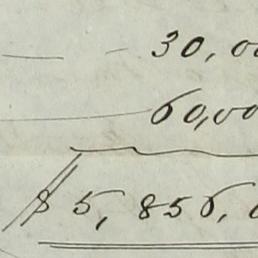 — - 30,00
60,00
$ 5,856,0